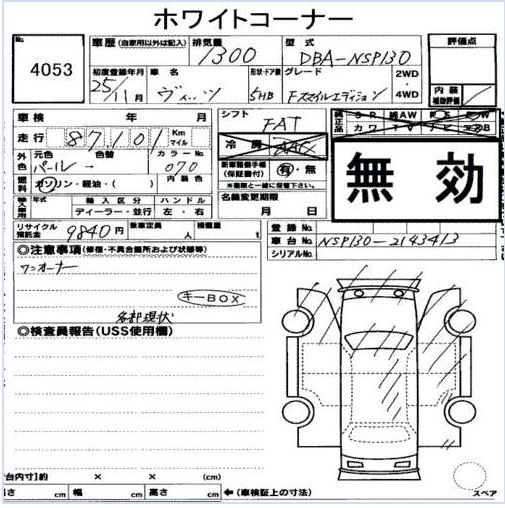 ホワイトコーナー
No. 4053
車歴(自家用以外は記入) 排気量 1300 型式 DBA-NSP130
初度登録年月 25年 11月 車名 ヴィッツ 形状・ドア数 5HB グレード Fスマイルエディション 2WD・4WD
評価点
内装補助評価
車検 年 月
走行 87,101 Km マイル
シフト FAT
冷房 AAC
純正品 SR 純AW PS PW
カワ TV ナビ
外色 元色 パール→ 色替 カラーNo. 070
燃料 ガソリン・軽油・( ) 内装色
新車整備手帳(保証書付) 有・無
※個無と一緒に提出して下さい。
無効
輸入車用 年式 輸入区分 ディーラー・並行 ハンドル 左・右
名義変更期限 月 日
リサイクル預託金 9840円 乗車定員 人 積載量 t
登録No.
車台No. NSP130-2143413
シリアルNo.
◎注意事項(修復・不具合箇所および状態等)
ワンオーナー
キーBOX
各部現状
◎検査員報告(USS使用欄)
台内寸)約 × × (cm)
長さ cm 幅 cm 高さ cm ←(車検証上の寸法)
スペア